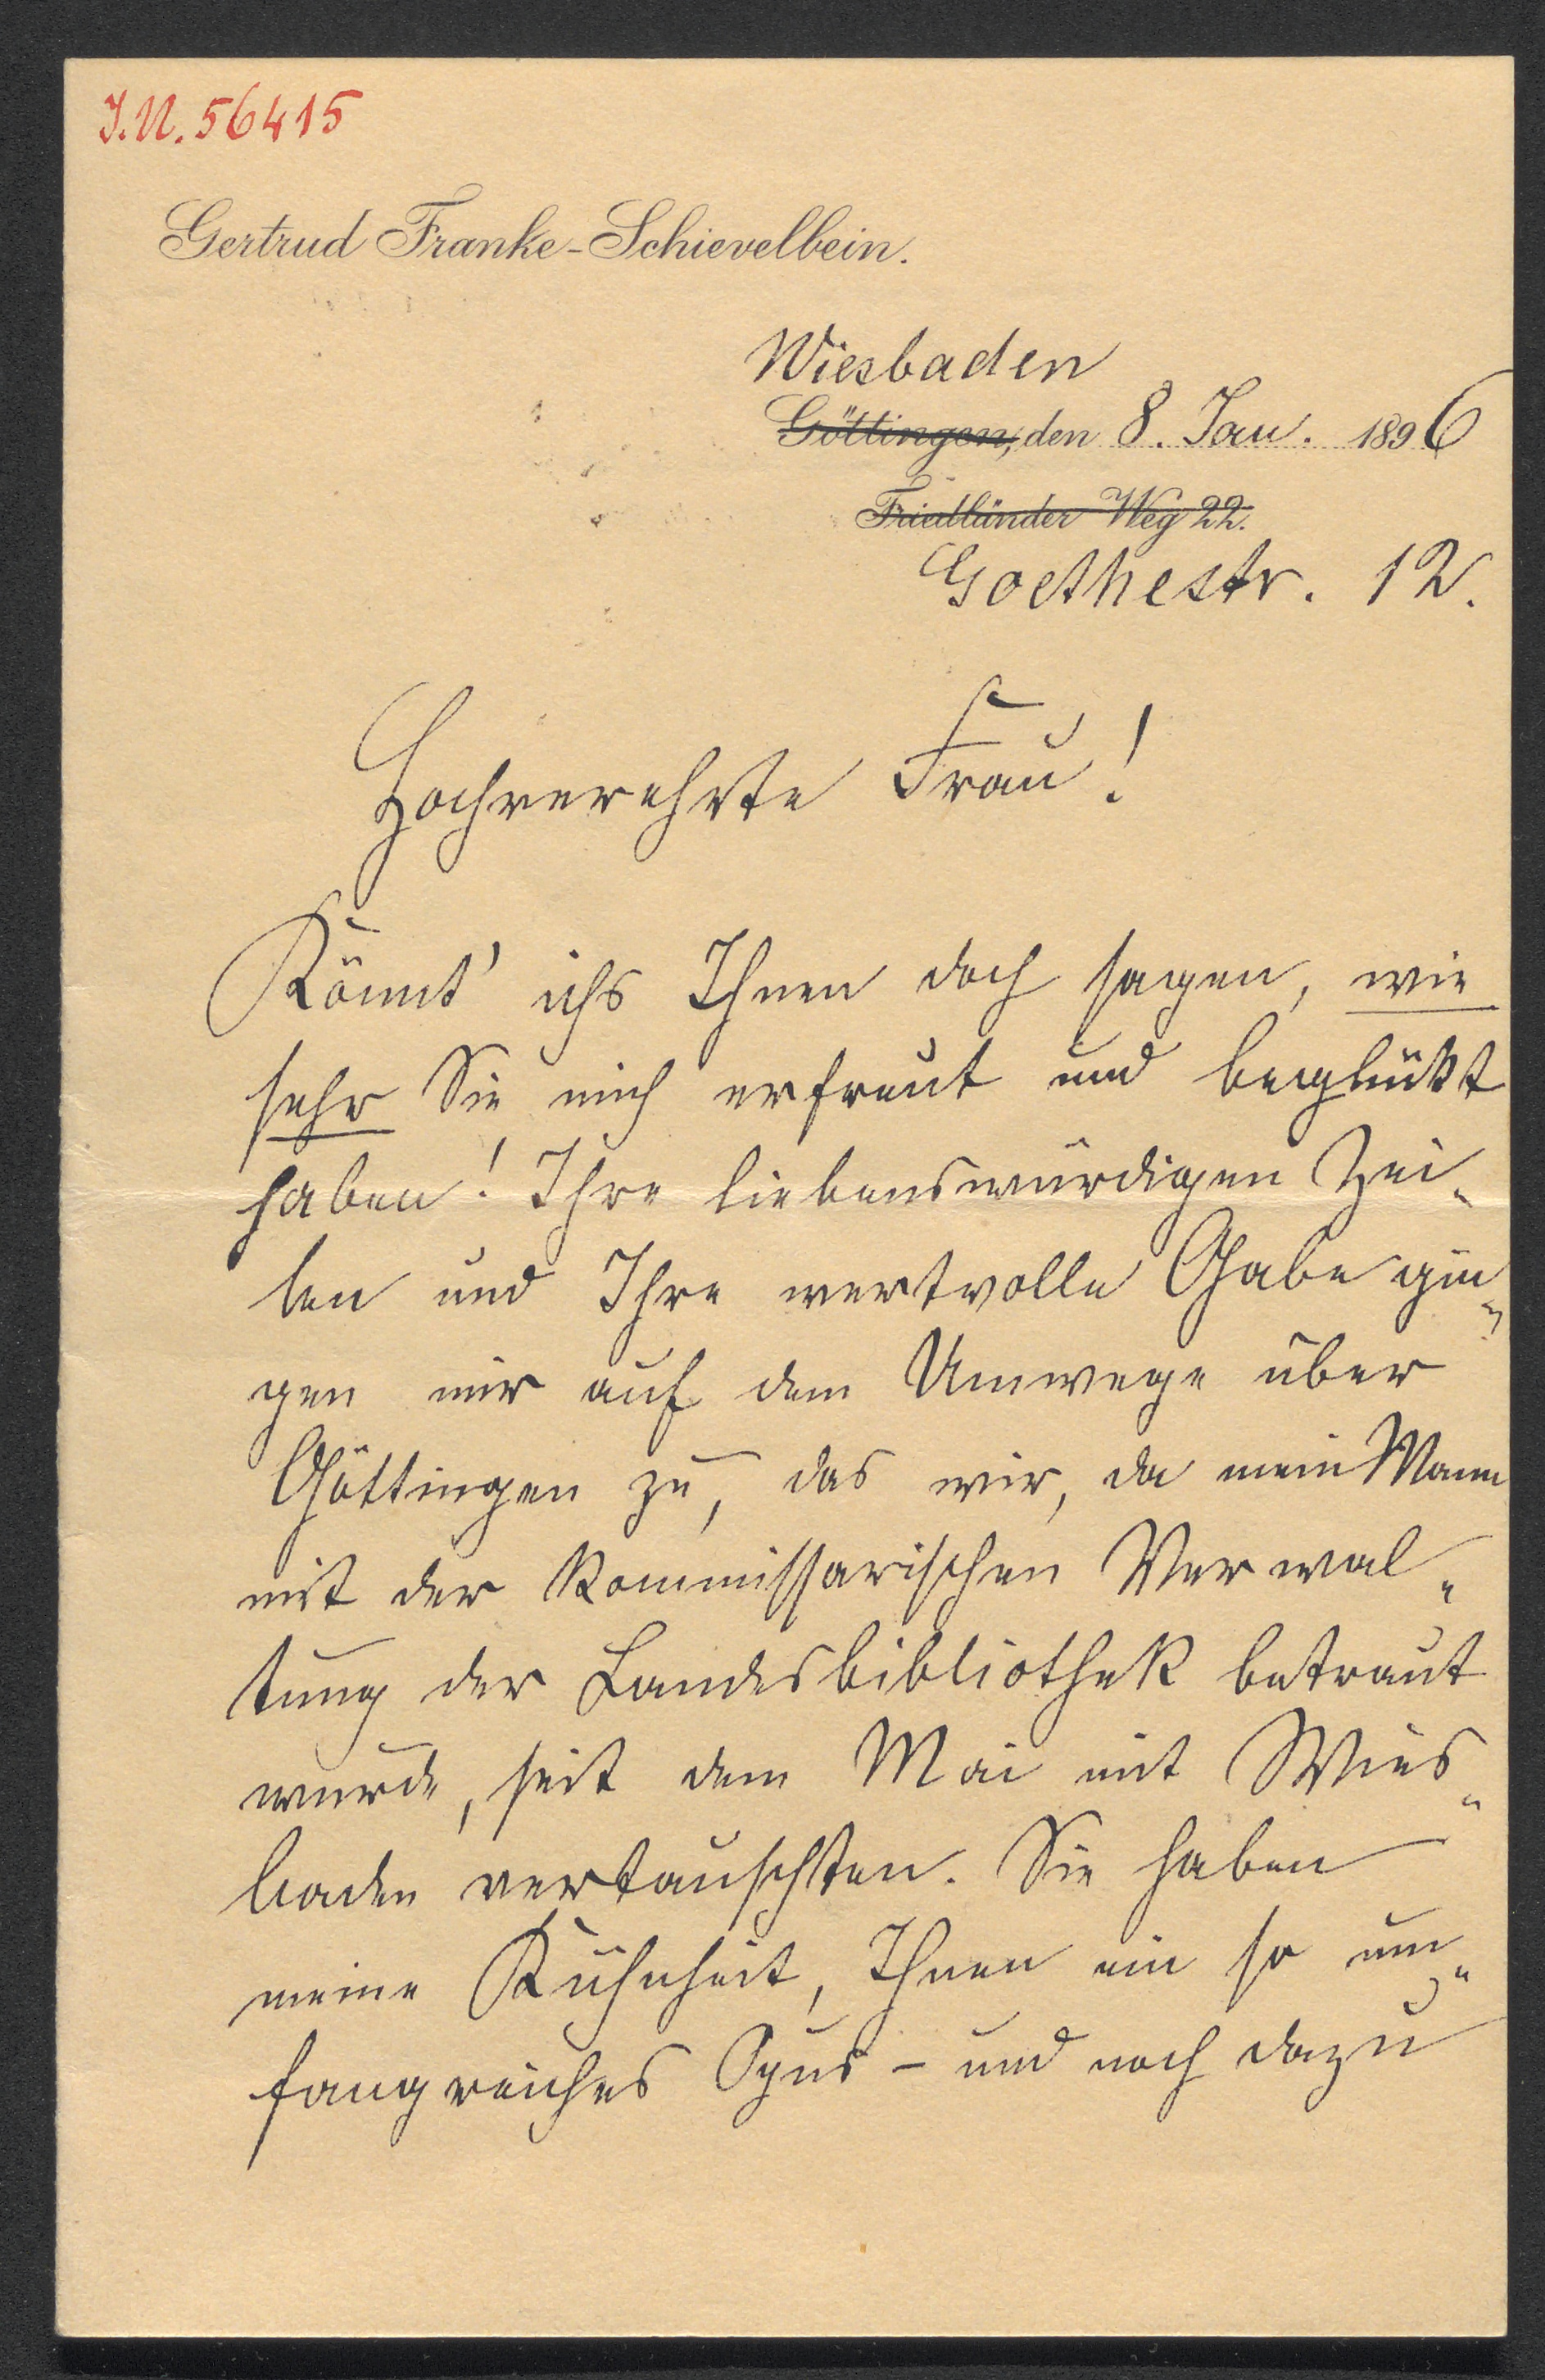 I.N. 56415
Gertrud Franke-Schievelbein.
Wiesbaden
Göttingen, den 8. Jan. 1896
Friedländer Weg 22.
Goethestr. 12.
Hochverehrte Frau!
Könnt' ichs Ihnen doch sagen, wie
sehr Sie mich erfreut und beglückt
haben! Ihre liebenswürdigen Zei-
len und Ihre wertvolle Gabe gin-
gen mir auf dem Umwege über
Göttingen zu, das wir, da mein Mann
mit der kommissarischen Verwal-
tung der Landesbibliothek betraut
wurde, seit dem Mai mit Wies-
baden vertauschten. Sie haben
meine Kühnheit, Ihnen ein so um-
fangreiches Opus – und noch dazu